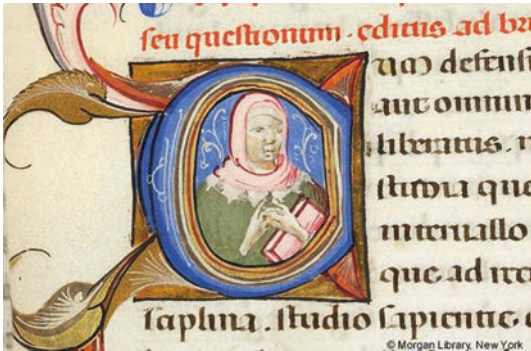 seu questionum . editus ad bru
um defensi
aut omnin
liberatus . r
studia que
interuallo
que ad rec
sciplina . studio sapientie . e
© Morgan Library, New York